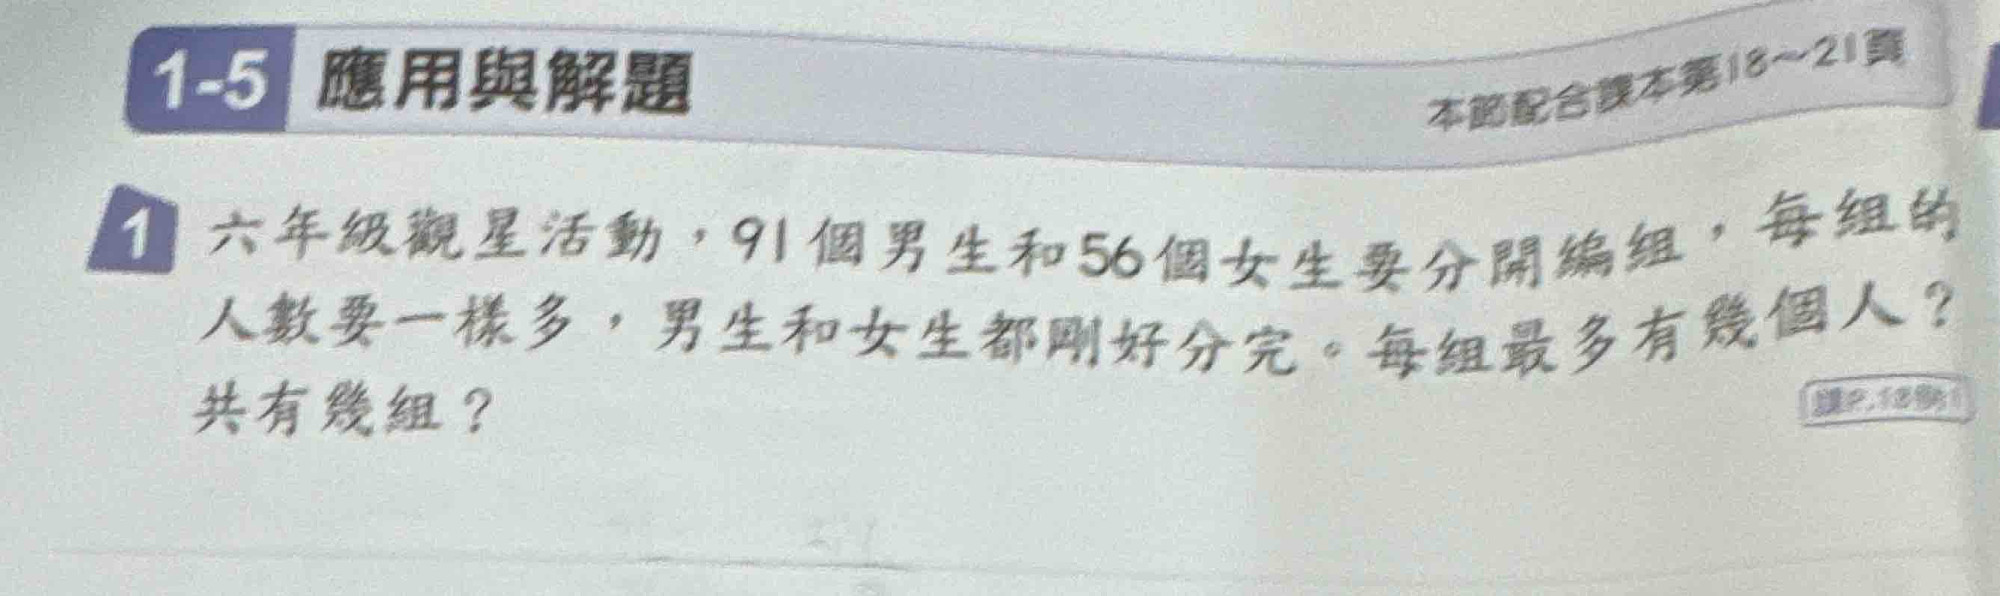 1-5 應用與解題
本節配合課本第18~21頁
1 六年級觀星活動，91個男生和56個女生要分開編組，每組的
人數要一樣多，男生和女生都剛好分完。每組最多有幾個人？
共有幾組？
課P.18例1